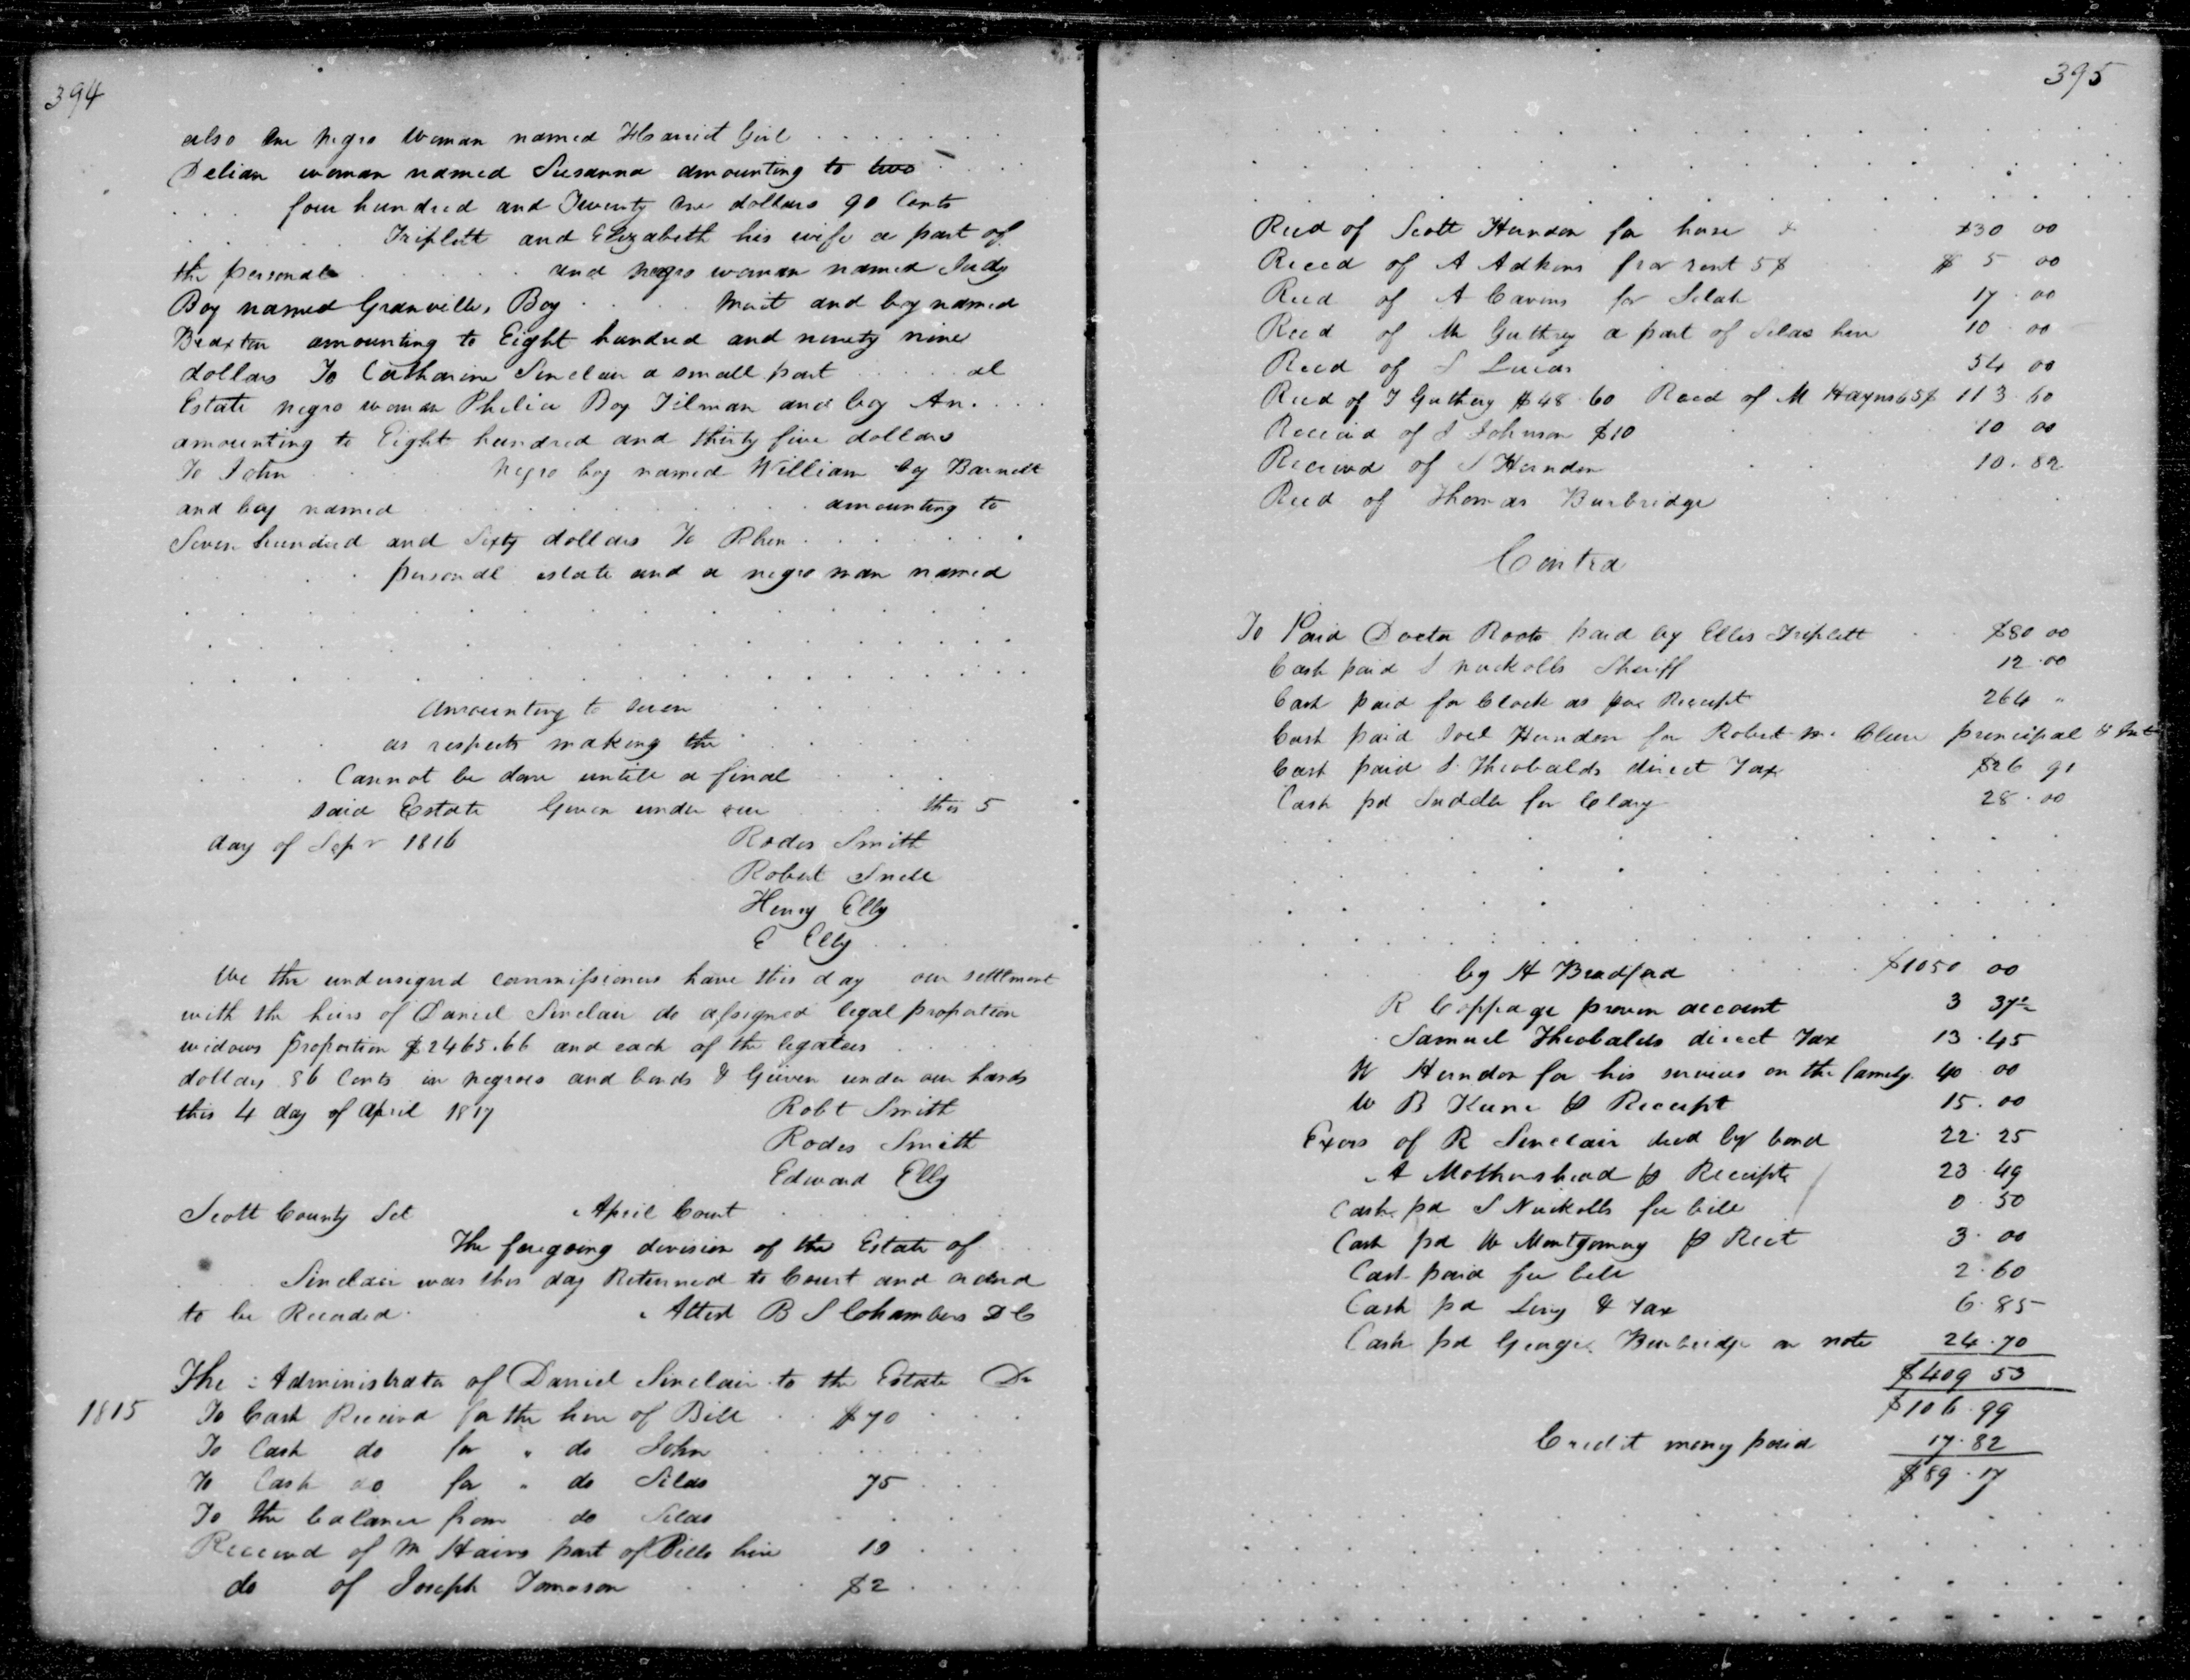 394
also One negro Woman named Harriet Girl . . . . . . .
Delian woman named Susanna amounting to two . . .
. . . four hundred and Twenty One dollars 90 Cents
. . . . Triplett and Elizabeth his wife a part of
the personal . . . . . . and negro woman named Judy
Boy named Granville, Boy . . . . Mait and boy named
Braxton amounting to Eight hundred and ninety nine
dollars To Catharine Sinclair a small part . . . . . al
Estate negro woman Philia Boy Tilman and boy An. . . .
amounting to Eight hundred and thirty five dollars
To John . . . . negro boy named William boy Barnett
and boy named . . . . . . . . amounting to
Seven hundred and Sixty dollars To Rhen . . . . . . .
. . . . personal estate and a negro man named
. . . . . . . . . . . . . .
. . . . . . . . . . . . . .
. . . . . . . . . . . . . .
amounting to seven . . .
. . . as respects making the . . . . .
. . . Cannot be done untill a final . . . .
said Estate Given under our . . . this 5
day of Sepr 1816 Rodes Smith
Robert Snell
Henry Elly
E Elly . . .
We the undersigned commissioners have this day our settlement
with the heirs of Daniel Sinclair do assigned legal proportion
widows proportion $2465.66 and each of the legatees . . . .
dollars 86 Cents in negroes and bonds & Given under our hands
this 4 day of April 1817 Robt Smith
Rodes Smith
Edward Elly
Scott County Set April Court . . . . .
The foregoing division of the Estate of . .
. . Sinclair was this day Returned to Court and ordered
to be Recorded. Attest B S Chambers D C
The Administrator of Daniel Sinclair to the Estate Dr
1815 To Cash Received for the hire of Bill . . $70 . . .
To Cash do for " do John . . . . . .
To Cash do for " do Silas 75 . . .
To the balance from do Silas . . . .
Received of M Hairs part of Bills hire 10 . . .
do of Joseph Tomoson . . . $2 . . . .
395
. . . . . . . . . . . . . .
. . . . . . . . . . . . . .
. . . . . . . . . . . . . .
Recd of Scott Herndon for horse $30 00
Receed of A Adkins for rent 5$ $ 5 00
Recd of A Cavens for Selah 17 . 00
Recd of M Guthrey a part of Silas hire 10 . 00
Recd of S Lucas 54 00
Recd of T Guthery $48.60 Recd of M Hayns 65$ 113.60
Received of S Johnson $10 10 00
Received of S Herndon 10.82
Recd of Thomas Burbridge
Contra
To Paid Doctor Roots paid by Ellis Triplett . . $80 00
Cash paid S Nuckolls Sheriff 12.00
Cash paid for Clock as per Receipt 264 "
Cash paid Joel Herndon for Robert Mc Clure principal & Int
Cash paid S. Theobalds direct Tax $26 91
Cash pd Saddler for Clary 28.00
. . . . . . . . . . . . . .
. . . . . . . . . . . . . .
. . . . . . . . . . . . . .
. . . . . . . . . . . . . .
. . . by H Bradford . . . . . $1050 00
R Coppage proven account 3 37½
Samuel Theobalds direct Tax 13.45
W Herndon for his services on the family 40 00
W B Keene p Receipt 15.00
Exors of R Sinclair decd by bond 22.25
A Mothershead p Receipt 23.49
Cash pd S Nuckolls fee bill 0.50
Cash pd W Montgomery p Rect 3.00
Cash paid fee bill 2.60
Cash pd Levy & Tax 6.85
Cash pd George Burbridge on note 24.70
$409 53
$106.99
Credit money paid 17.82
$89.17
. . . . . . . . . . . . . .
. . . . . . . . . . . . . .
. . . . . . . . . . . . . .
. . . . . . . . . . . . . .